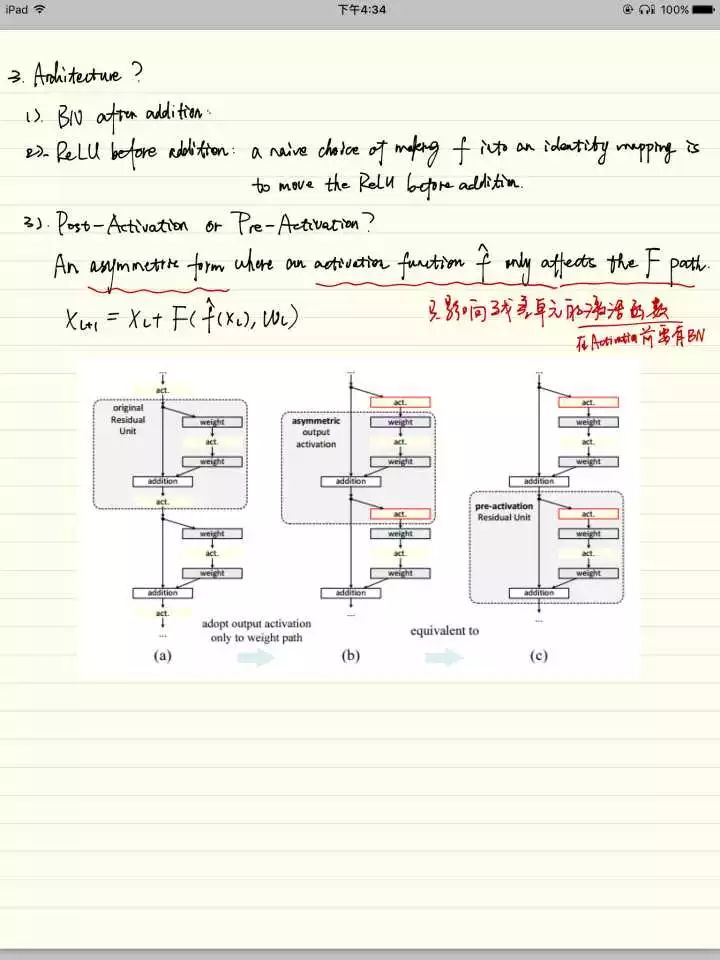 iPad
下午4:34
100%
3. Architecture?
1). BN after addition.
2). ReLU before addition: a naive choice of making f into an identity mapping is
to move the ReLU before addition.
3). Post-Activation or Pre-Activation?
An asymmetric form where an activation function f̂ only affects the F path.
X_{L+1} = X_L + F(f̂(X_L), W_L)
只影响残差单元的激活函数
在Activation前要有BN
...
act.
original
Residual
Unit
weight
act.
weight
addition
act.
weight
act.
weight
addition
act.
...
(a)
adopt output activation
only to weight path
...
act.
asymmetric
output
activation
weight
act.
weight
addition
act.
weight
act.
weight
addition
...
(b)
equivalent to
...
act.
weight
act.
weight
addition
pre-activation
Residual Unit
act.
weight
act.
weight
addition
...
(c)